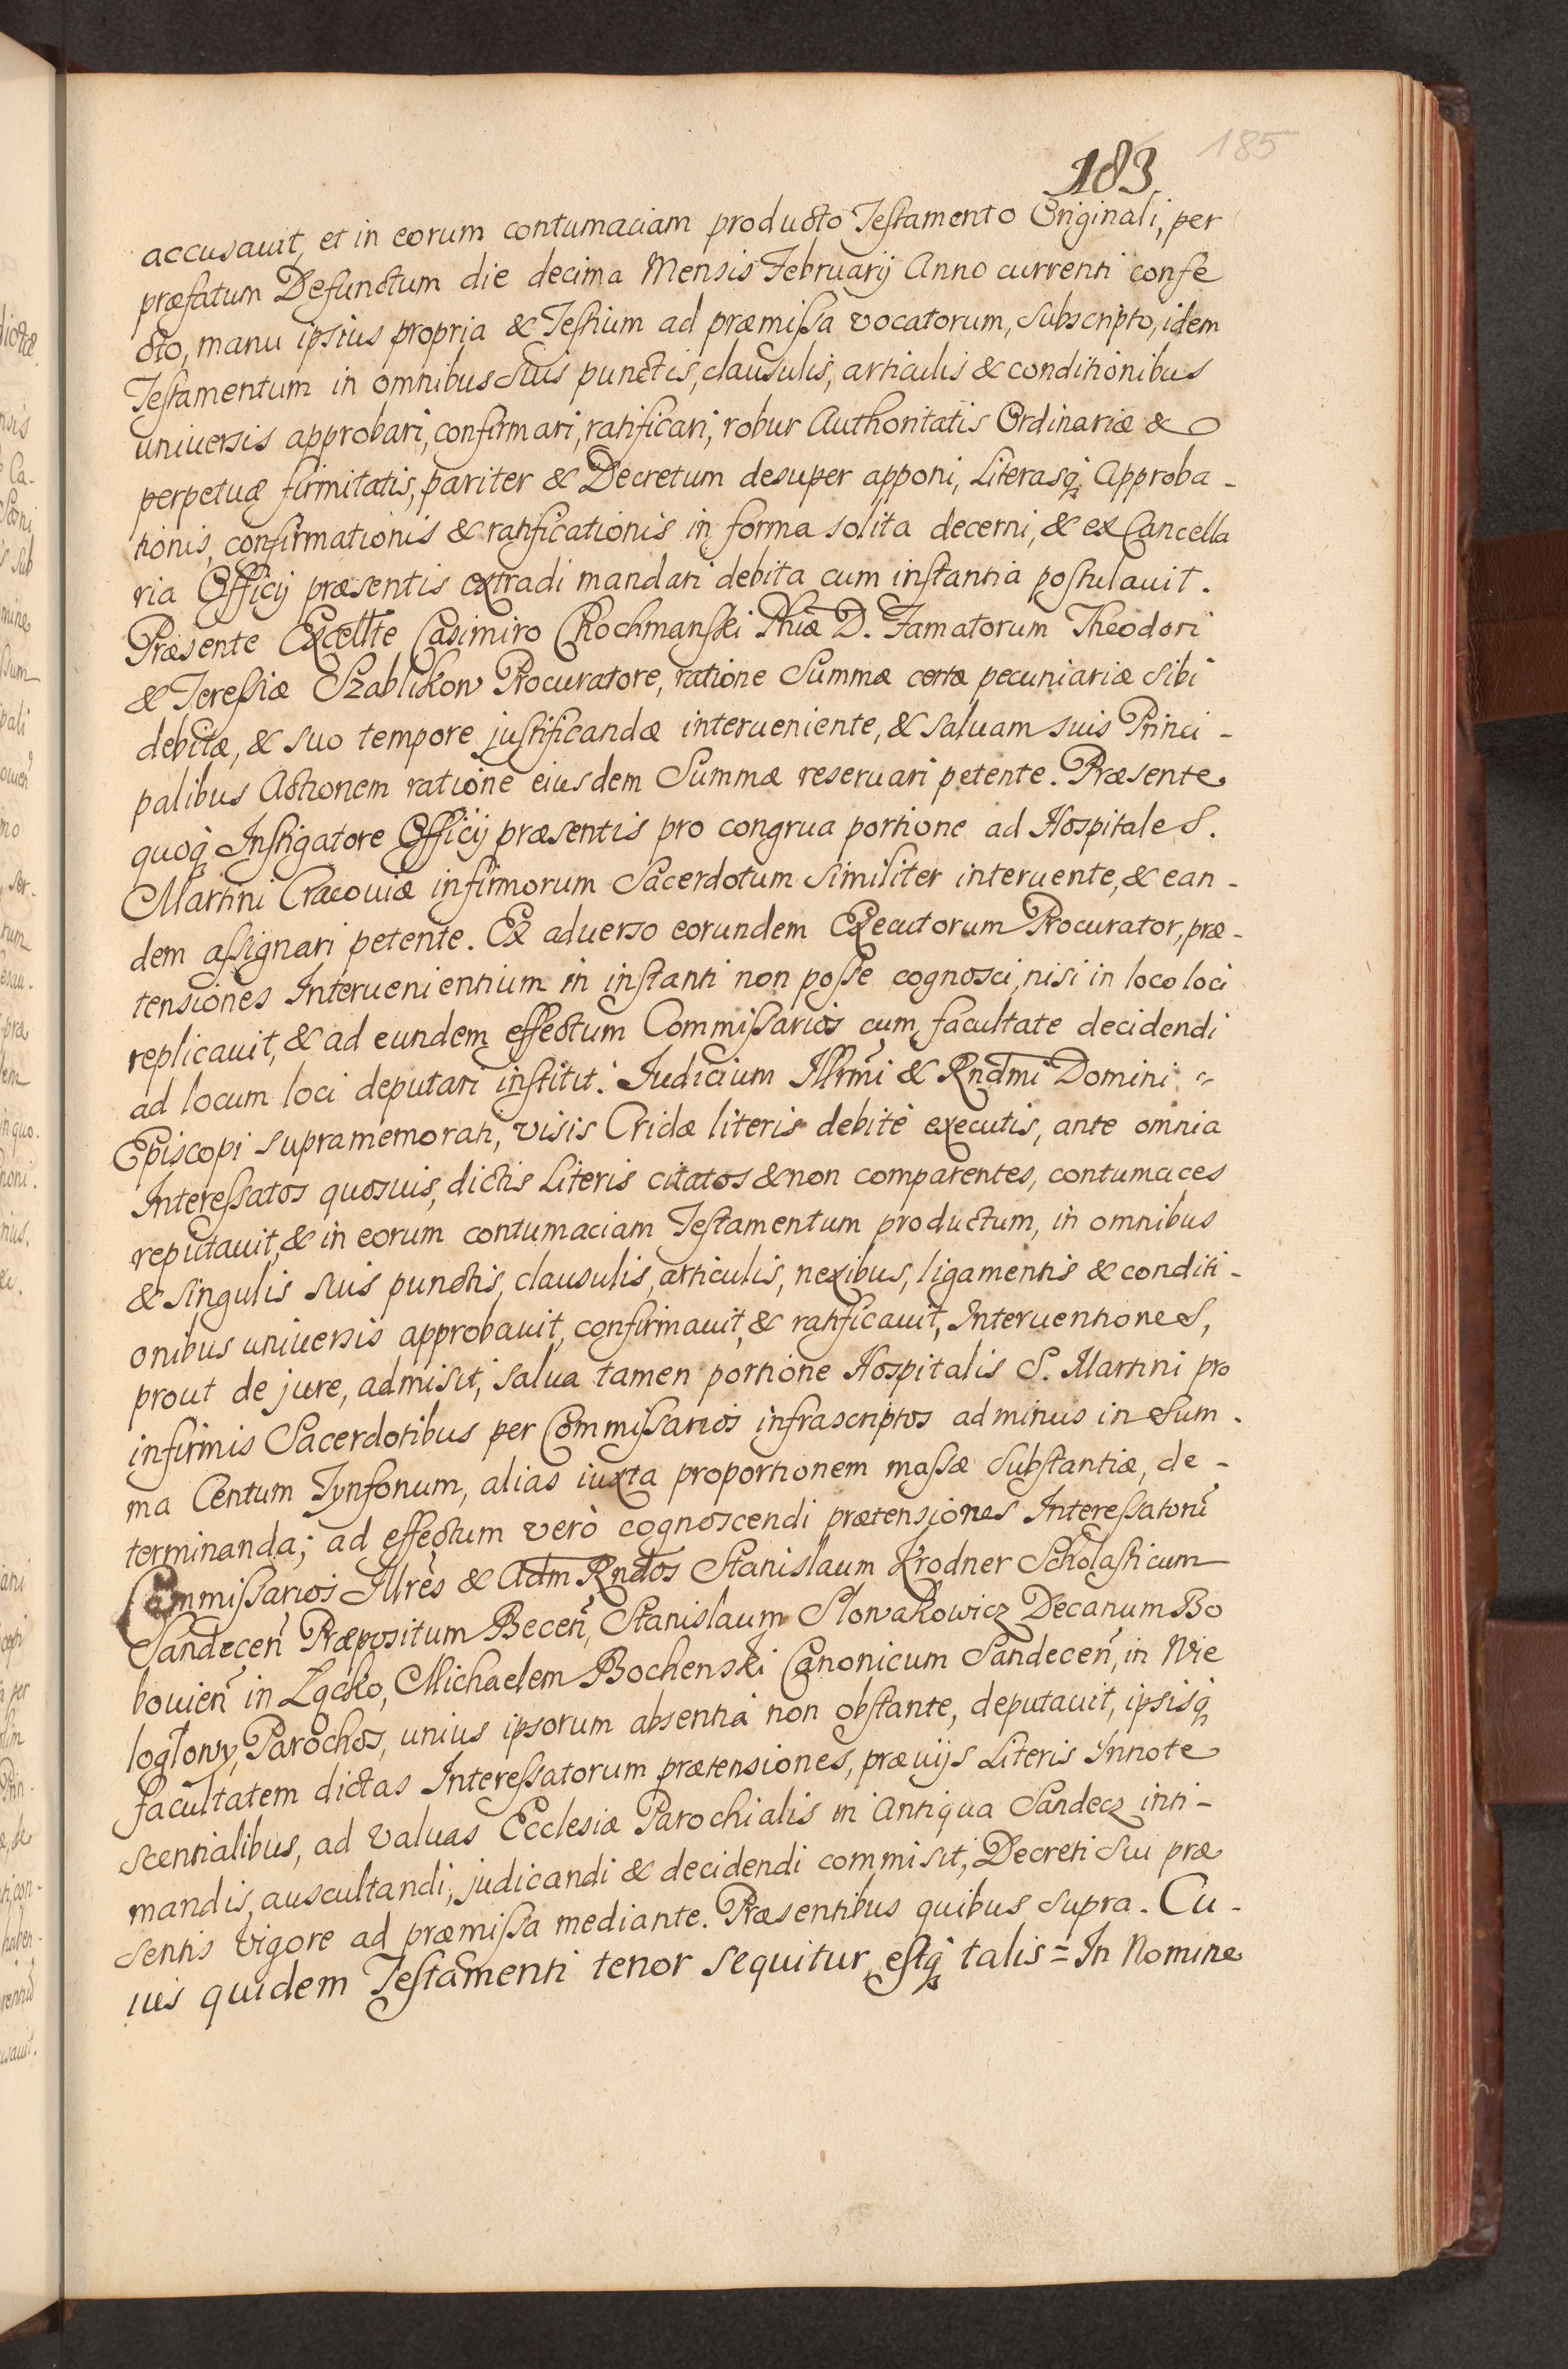 185
183.
accusauit, et in eorum contumaciam producto Testamento Originali, per
præfatum Defunctum die decima Mensis Februarij Anno currenti confe
cto, manu ipsius propria & Testium ad præmissa vocatorum, subscripto, idem
Testamentum in omnibus suis punctis, clausulis, articulis & conditionibus
uniuersis approbari, confirmari, ratificari, robur Authoritatis Ordinariæ &
perpetuæ firmitatis, pariter & Decretum desuper apponi, Literasq́ Approba -
tionis, confirmationis & ratificationis in forma solita decerni, & ex Cancella
ria Officij præsentis extradi mandari debita cum instantia postulauit.
Præsente Excellte Casimiro Chochmanski Phiæ D. Famatorum Theodori
& Teressiæ Szablikow Procuratore, ratione Summæ certæ pecuniariæ sibi
debitæ, & suo tempore justificandæ interueniente, & saluam suis Princi -
palibus Actionem ratione eiusdem Summæ reseruari petente. Præsente
quoq́ Instigatore Officij præsentis pro congrua portione ad Hospitale S.
Martini Cracouiæ infirmorum Sacerdotum similiter interuente, & ean -
dem assignari petente. Ex aduerso eorundem Executorum Procurator, præ -
tensiones Interuenientium in instanti non posse cognosci, nisi in loco loci
replicauit, & ad eundem effectum Commissarios cum facultate decidendi
ad locum loci deputari institit. Judicium Illrm̃i & Rndmi Domini =
Episcopi supramemorati, visis Cridæ literis debitè executis, ante omnia
Interessatos quosuis, dictis Literis citatos & non comparentes, contumaces
reputauit, & in eorum contumaciam Testamentum productum, in omnibus
& singulis suis punctis, clausulis, articulis, nexibus, ligamentis & conditi -
onibus uniuersis approbauit, confirmauit, & ratificauit, Interuentiones,
prout de jure, admisit, salua tamen portione Hospitalis S. Martini pro
infirmis Sacerdotibus per Commissarios infrascriptos ad minus in Sum -
ma Centum Tynfonum, alias iuxta proportionem massæ Substantiæ, de -
terminanda; ad effectum verò cognoscendi prætensiones Interessatorũ
Commissarios Illres & Adm Rndos Stanislaum Krodner Scholasticum
Sandecen̄ Præpositum Becen̄, Stanislaum Slowakowicz Decanum Bo
bouien̄ in Łącko, Michaelem Bochenski Canonicum Sandecen̄, in Wie
logłowy, Parochos, unius ipsorum absentia non obstante, deputauit, ipsisq́
facultatem dictas Interessatorum prætensiones, præuijs Literis Innote
scentialibus, ad valuas Ecclesiæ Parochialis in Antiqua Sandecz inti -
mandis, auscultandi, judicandi & decidendi commisit, Decreti sui præ
sentis vigore ad præmissa mediante. Præsentibus quibus supra. Cu -
ius quidem Testamenti tenor sequitur, estq́ talis = In Nomine